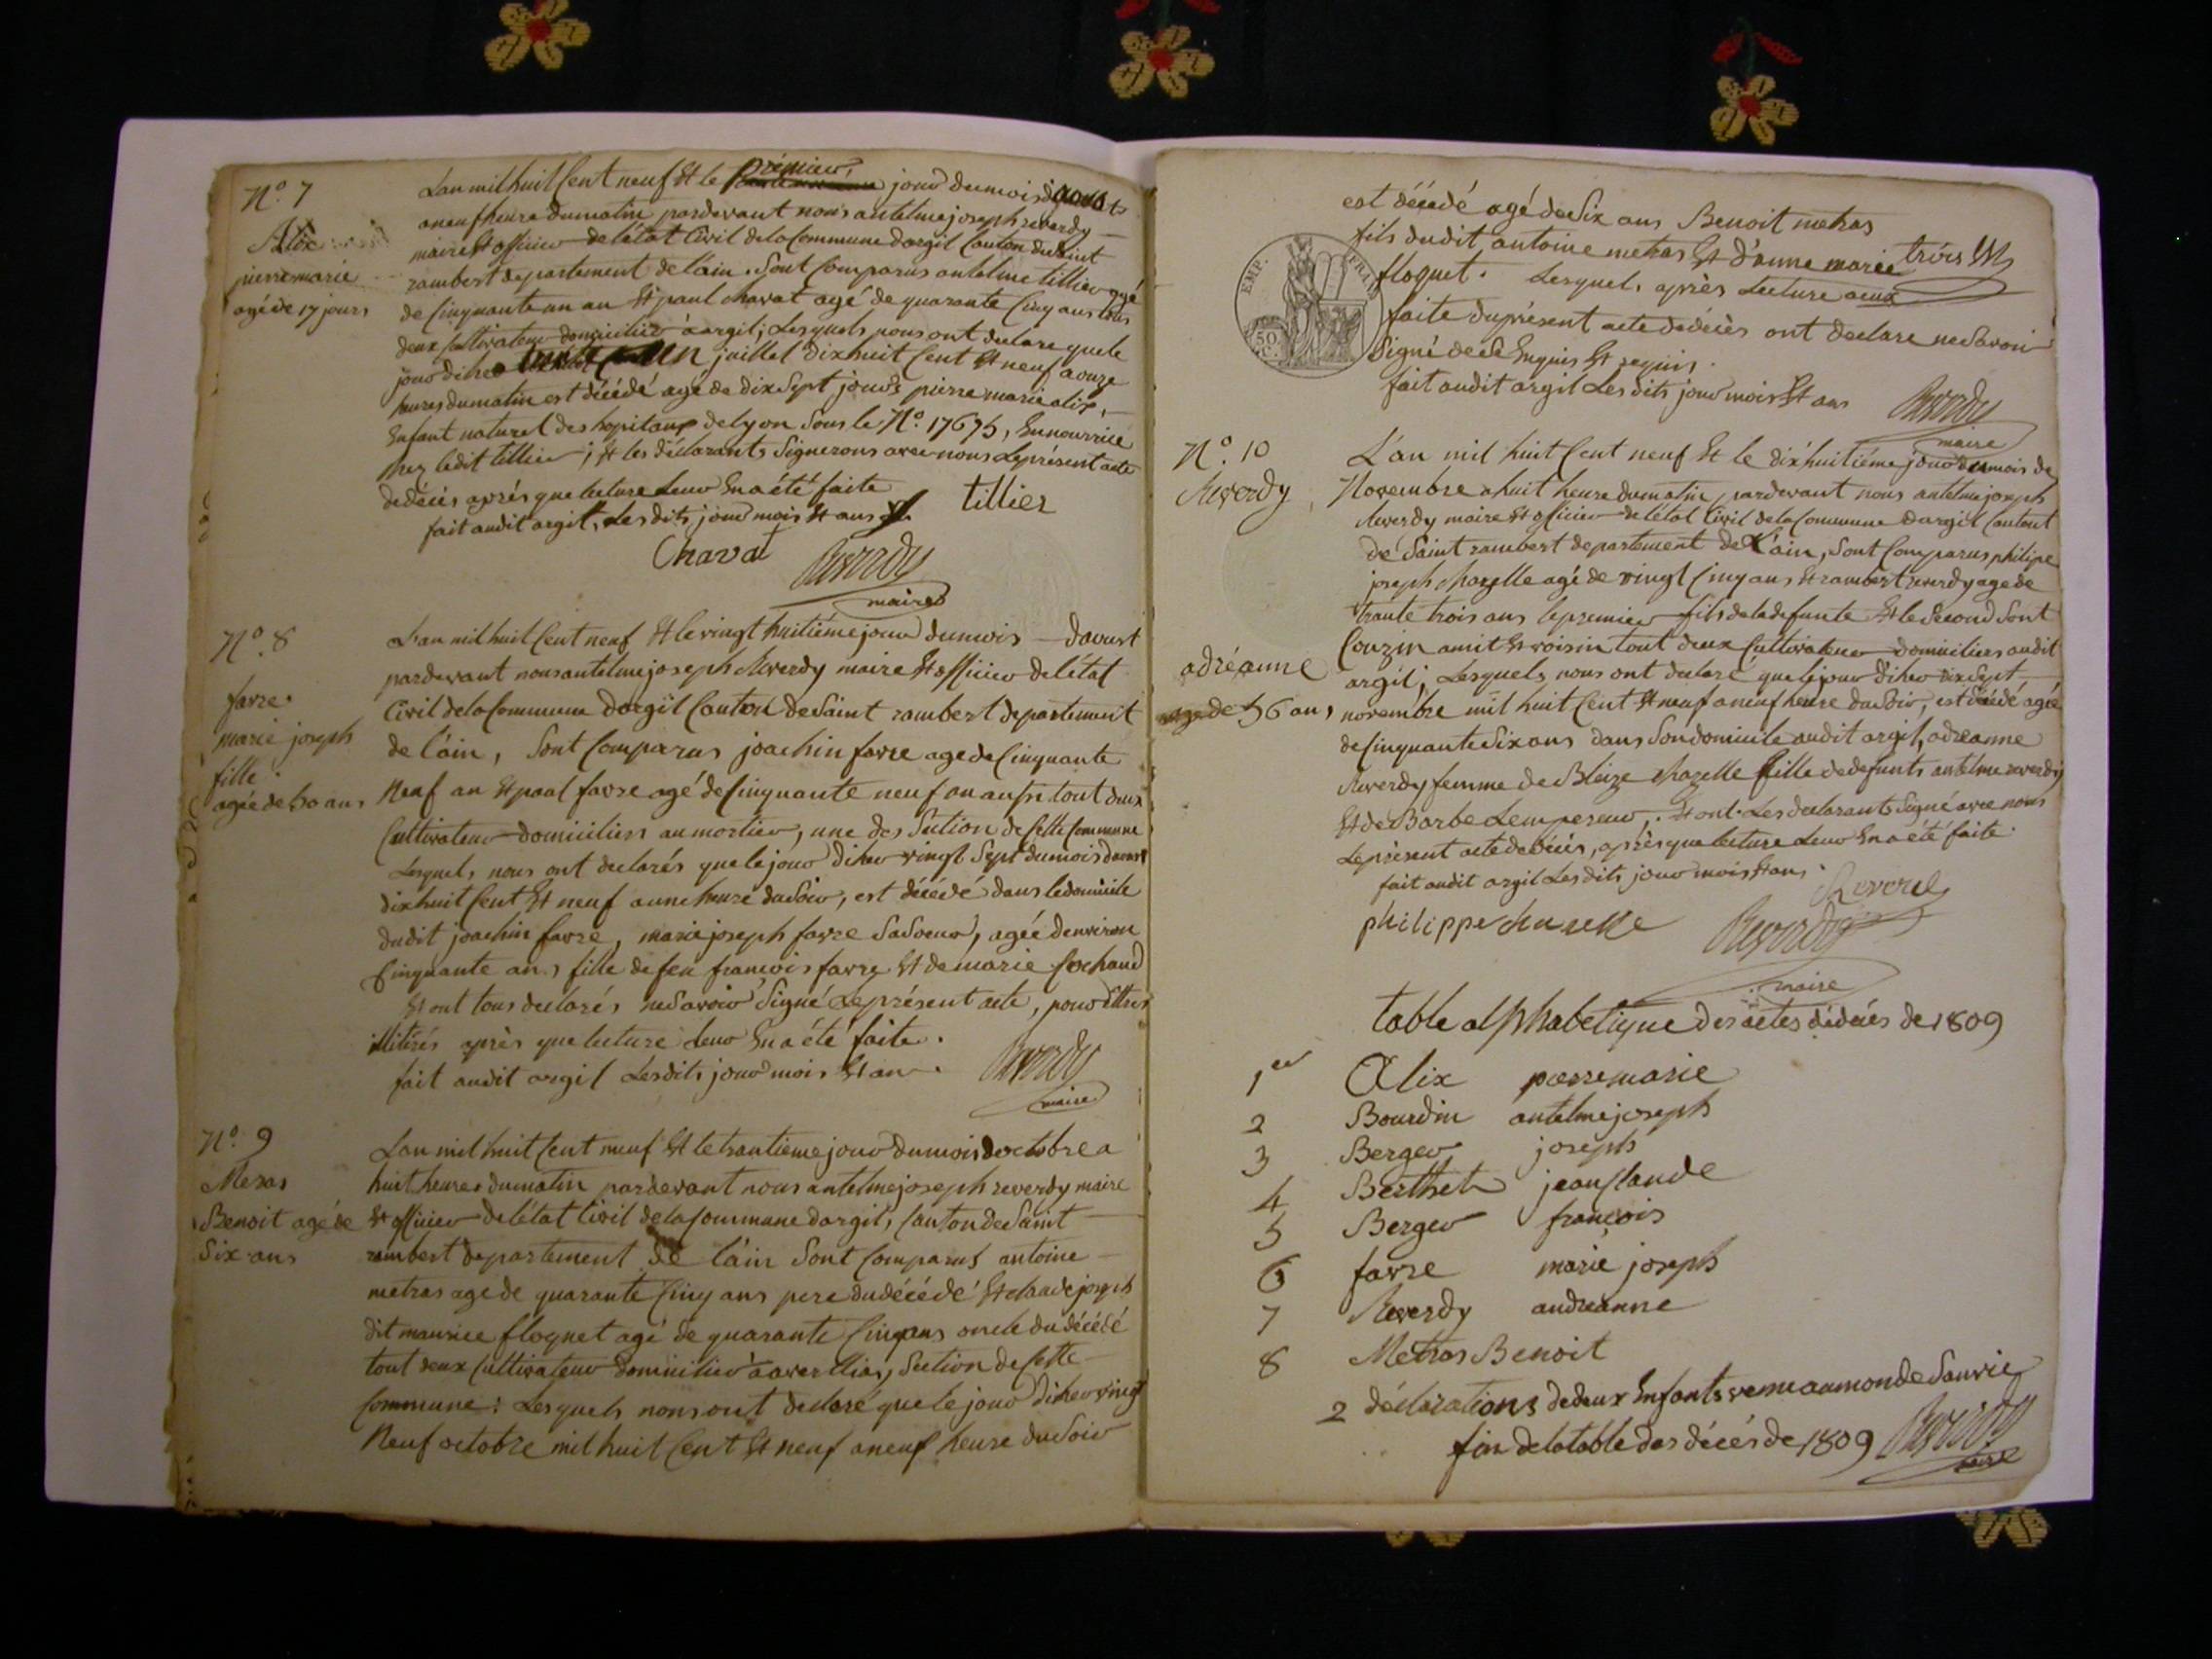 N.º 7
Alix
pierre marie
agé de 17 jours
L'an mil huit Cent neuf Et le prémier jour du mois d'aoust
a neuf heure du matin pardevant nous antelme joseph reverdy
maire Et officier de létat Civil de la Commune dargil Canton de Saint
rambert departement de láin. Sont Comparus antelme tillier agé
de Cinquante un an Et paul chavat agé de quarante Cinq ans tous
deux Cultivateur domicilier a argil; Lesquels nous ont declare que le
jour diher juillet dix huit Cent Et neuf a onze
heures du matin est décédé agé de dix Sept jours pierre marie alix,
Enfant naturel des hopitaux de lyon Sous le N.º 17675, En nourrice
chez ledit tillier; Et les déclarants Signerons avec nous Le présent acte
de déciès après que lecture Leur En a été faite
fait audit argil, Les dits jour mois Et ans
tillier
Chavat
Reverdy
maire
N.º 8
favre
marie joseph
fille
agée de 50 ans
L'an mil huit Cent neuf Et le vingt huitiéme jour du mois daoust
pardevant nous antelme joseph Reverdy maire Et officier de létat
Civil de la Commune dargil Canton de Saint rambert departement
de láin, Sont Comparus joachin favre age de Cinquante
Neuf an Et paul favre agé de Cinquante neuf an aussi tout deux
Cultivateur domiciliers au mortier, une des Sution de Cette Commune
Lesquels nous ont declarés que le jour diher vingt Sept du mois daoust
dix huit Cent Et neuf a une heure du Soir, est décédé dans le domicile
dudit joachin favre, marie joseph favre Sa Soeur, agée denviron
Cinquante ans fille de feu francois favre Et de marie Cochand
Et ont tous declarés ne Savoir Signé Le présent acte, pour Ettres
illitérés après que lecture Leur En a été faite.
fait audit argil Lesdits jour mois Et an.
Reverdy
maire
N.º 9
Meras
Benoit agé de
Six ans
L'an mil huit Cent neuf Et le trantieme jour du mois doctobre a
huit heures du matin pardevant nous antelme joseph reverdy maire
Et officier de létat Civil de la Commune dargil, Canton de Saint
rambert departement de láin Sont Comparus antoine
metras age de quarante Cinq ans pere du décédé Et claude joseph
dit maurice floquet agé de quarante Cinq ans oncle du décédé
tout deux Cultivateur domicilier a averlliaz, Section de Cette
Commune: Lesquels nous ont declaré que le jour diher vingt
Neuf octobre mil huit Cent Et neuf a neuf heure du Soir
est décédé agé de Six ans Benoit metras
fils dudit antoine metras Et d'anne marie
floquet. Lesquels après Lecture a eux
faite du présent acte de déciès ont declare ne Savoir
Signé de Ce Enquis Et requis.
fait audit argil Les dits jour mois Et ans
Reverdy
maire
EMP. FRAN
50
C.
N.º 10
Reverdy
adréanne
agée de 56 ans
L'an mil huit Cent neuf Et le dix huitiéme jour du mois de
Novembre a huit heure du matin, pardevant nous antelme joseph
Reverdy maire Et officier de létat Civil de la Commune dargil Canton
de Saint rambert departement de Láin, Sont Comparus philipe
joseph chazelle agé de vingt Cinq ans Et rambert reverdy age de
trante trois ans le premier fils de la defunte Et le Second Sont
Couzin amit Et voisin tout deux Cultivateur domiciliers audit
argil; Lesquels nous ont declaré que le jour dihier dix Sept
novembre mil huit Cent Et neuf a neuf heure du Soir, est décédé agée
de Cinquante Six ans dans Son domicile audit argil, adreanne
Reverdy femme de Bleize chazelle fille de defunts antelme reverdy
Et de Barbe Lempereur. Et ont Les declarants Signé avec nous
Le présent acte de déciès, après que lecture Leur En a été faite.
fait audit argil Les dits jour mois Et ans
philippe chazelle
Reverdy
maire
table alphabetique des actes dédécés de 1809
1er Alix pierre marie
2 Bourdin antelme joseph
3 Berger joseph
4 Berthet jean Claude
5 Berger françois
6 favre marie joseph
7 Reverdy andreanne
8 Metras Benoit
2 déclarations de deux Enfants venu au monde Sanvie
fin de la table des décés de 1809 Reverdy
maire